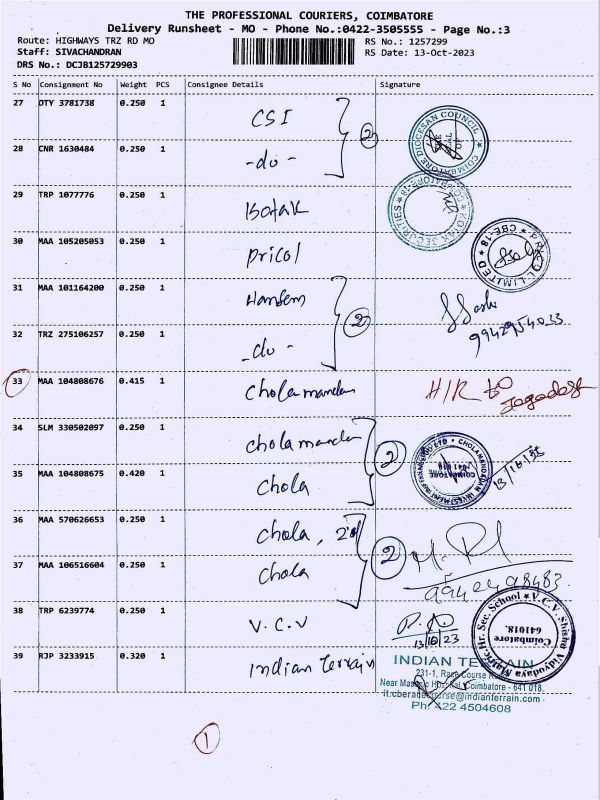 THE PROFESSIONAL COURIERS, COIMBATORE
Delivery Runsheet - MO - Phone No.:0422-3505555 - Page No.:3
Route: HIGHWAYS TRZ RD MO RS No.: 1257299
Staff: SIVACHANDRAN RS Date: 13-Oct-2023
DRS No.: DCJB125729903
S No Consignment No Weight PCS Consignee Details Signature
27 DTY 3781738 0.250 1 CSI
2
28 CNR 1630484 0.250 1 -do-
COIMBATORE DIOCESAN COUNCIL
29 TRP 1077776 0.250 1 Kotak
KOTAK SECURITIES
COIMBATORE-18
30 MAA 105205053 0.250 1 Pricol
LIMITED CBE-18
31 MAA 101164200 0.250 1 Hansem
2
9942954033
32 TRZ 275106257 0.250 1 -do-
33 MAA 104808676 0.415 1 Cholamandan H/R to Jagadesh
34 SLM 330502097 0.250 1 Cholamandan
2
CHOLAMANDALAM INVESTMENT
COIMBATORE
641 018
35 MAA 104808675 0.420 1 Chola
36 MAA 570626653 0.250 1 Chola,
2
37 MAA 106516604 0.250 1 Chola
38 TRP 6239774 0.250 1 V.C.V
13/10/23
V.C.V. Shishu Vidyodaya Matric. Hr. Sec. School
Coimbatore
641018.
39 RJP 3233915 0.320 1 Indian Terrain
INDIAN TERRAIN
231-1, Race Course
Near Hospital, Coimbatore - 641 018.
@indianterrain.com
Ph: 422 4504608
1